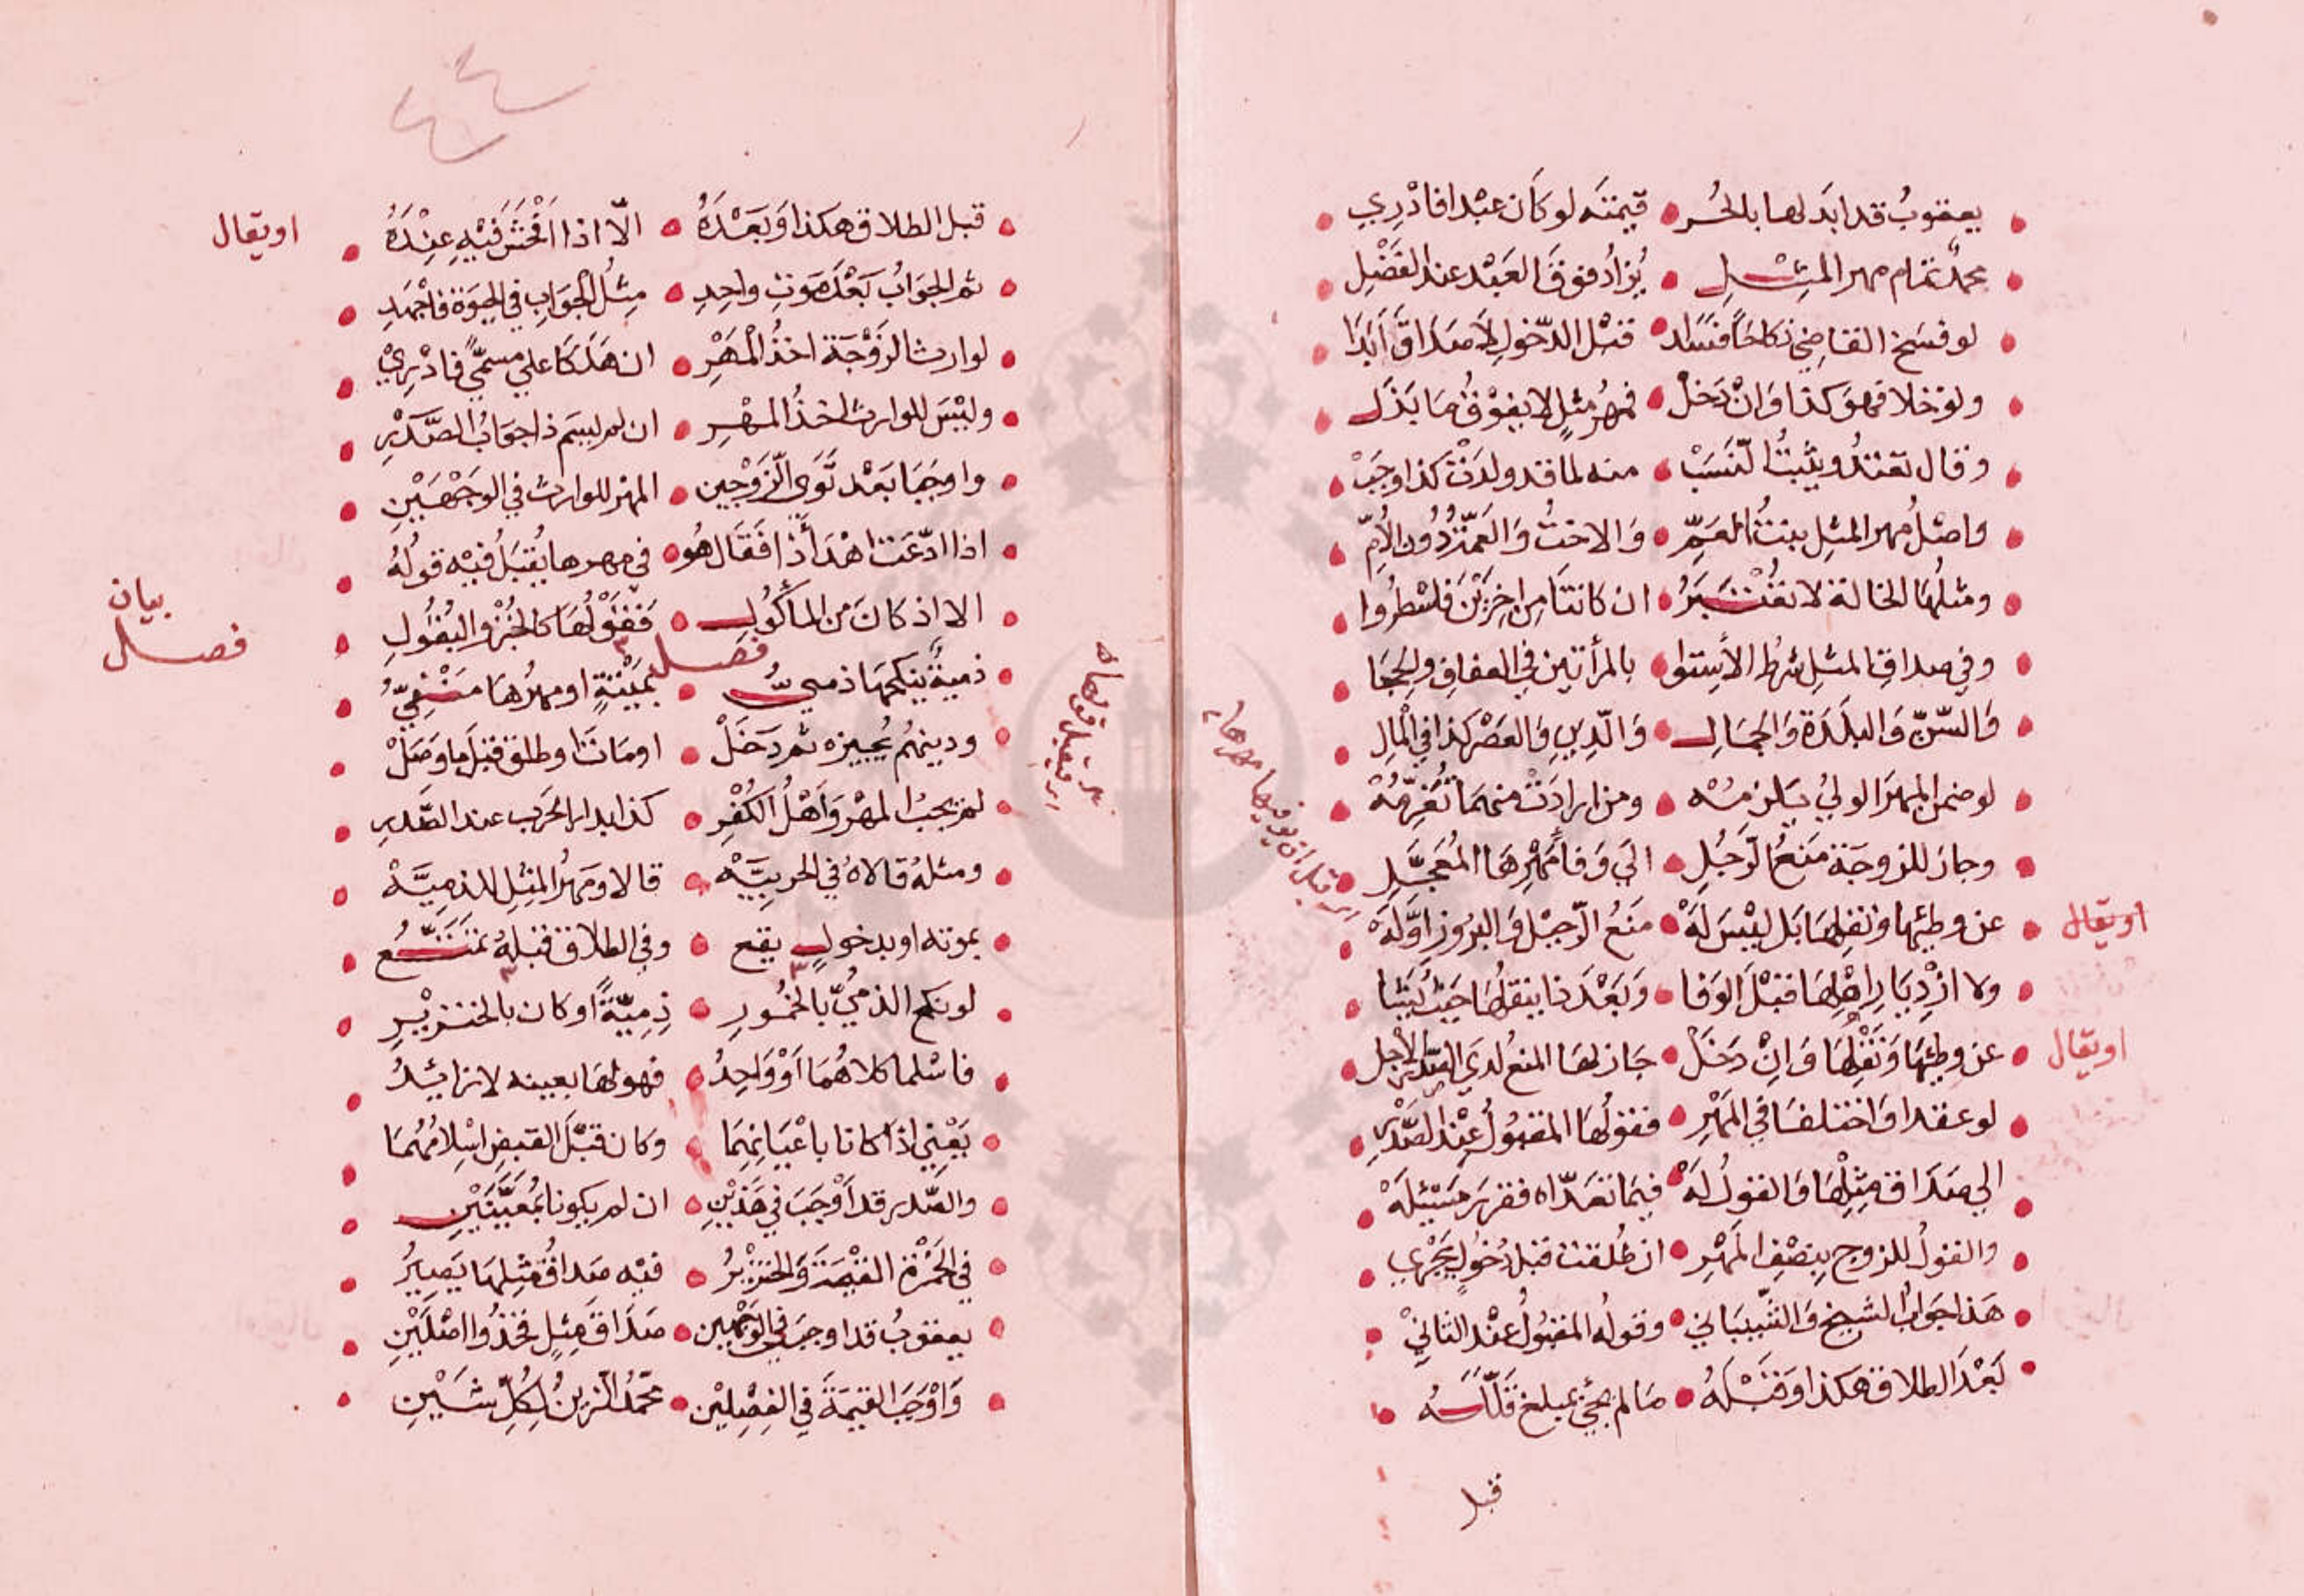 يعقوبُ قد ابدَلها بالحُر قيمتَه لو كَان عبْدا فادْرِي
محمدٌ تمام مهر المِثْلِ يُزادُ فوقَ العَبْد عند الفَضْلِ
لو فسَخ القاضِي نكاحًا فسَدا قبْل الدّخولِ لَا صَدَاقَ اَبَدَا
ولوْ خلا فهوَ كذا وَانْ دَخلْ فمهْرُ مثلٍ لا يفوْقُ مَا بَذَلْ
وقال تعتدُّ ويثبتُ النّسَبْ منه لما قد ولدَتْ كذا وجَبْ
واصْلُ مهر المثلِ بنتُ العَمِّ وَالاختُ وَالعَمّةُ دُون الأُمِّ
ومثلُهَا الخالة لا تعْتَبَرُ ان كانتَا مِن اخِرَيْنَ فاسْطُروا
وفي صداق المثلِ شرطُ الاِستوا بالمرأتين في العفافِ والِحجَا
وَالسّنّ وَالبلْدَة وَالجمَالِ وَالدّينِ وَالعَصْر كذا في المْالِ
لو ضمن المهرَ الوليُ يَلزمُهْ ومن ارادَتْ منهمَا تُغَرِّمُهْ
وجاز للزوجَة مَنعُ الرّجُلِ الي وَفا مَهْرِهَا المُعَجَّلِ
عن وطئِها ونقلِهَا بَل ليْسَ لَهْ مَنَعُ الرّحِيْلِ وَالبرُوزِ اوَّلَهْ
اويقال
ولا ازْدِيَارِ اهْلِهَا قبْلَ الوَفا وَبَعْدَ ذا ينقلُهَا حَيْثُ يَشَا
عن وطئِهَا وَنَقْلِهَا وَانْ دَخَلْ جَاز لهَا المنعُ لدَي الصّدْر الاجل
اويقال
لو عقدا وَاختلفَا في المَهْرِ فقولُهَا المقبُولُ عِنْد الصّدْرِ
الي صَدَاق مِثْلِهَا وَالقولُ لَهْ فيمَا تعَدّاه فقرّر مَسْئلَهْ
والقولُ للزوج بنصْفِ المَهْرِ ان طُلقت قبْل دُخُولٍ يَجْرِي
هَذا جوابُ الشيخ وَالشّيبَاني وقولُه المقبُولُ عنْد الثانيْ
بَعْدَ الطلاق هكذا وَقَبْلَهُ مَا لم يجئ بمبلغ قَلّلَهُ
قبل
ان يوفيها مهرها
قبل الطلاق هكذا وَبَعْدَهُ الّا اذا اَفْحَشَ فيْهِ عِنْدَهُ
اويقال
ثم الجوَابُ بَعْدَ مَوْتِ واحِدِ مِثْلُ الجوَابِ في الحيَوة فاجْهَدِ
لوارث الزَوْجَة اخذُ المْهَرْ ان هَلَكَا علي مسمّيً فادْرِيْ
وليْسَ للوارث اخذُ المهْرِ ان لم يسم ذا جوَابُ الصّدْرِ
واوجَبا بَعْد تَوَي الزَوْجين المهرَ للوارث في الوَجْهَيْنِ
اذا ادّعَتْ اهْدَأ ذا فقَال هُو في مهرها يُقبَلُ فيْه قولُهُ
الا اذ كان من المأكُولِ فقوْلُهَا كالخبْز والبُقولِ
بيان
فصل
فصل
ذميةٌ ينكحُهَا ذميُّ بمَيْتَةٍ او مهرُها مَنْفِيُّ
ودينهُم يُجيزه ثم دَخَلْ او مَاتَ او طلق قبْل ما وَصَلْ
لم يجبُ المهْر وَاَهْلُ الكُفْرِ كذا بدار الحَرب عند الصَّدْرِ
ومثلهُ قالاهُ في الحربِيّهْ قالا ومَهرُ المثِلِ للذِمِيَّهْ
بموته او بدخولٍ يقع وفي الطلاق قبْلهُ تمتّعُ
لو نكح الذميُّ بالخمُورِ ذِمِيّةً او كان بالخنزيْرِ
فاسْلما كلاهُمَا اَوْ وَاحِدُ فهو لهَا بعينه لا زائدُ
يَعْنِي اذا كانا باعْيَانِهِمَا وكان قبْلَ القبضِ اِسْلامُهُمَا
والصّدر قد اَوْجَبَ في هَذيْنِ ان لم يكونا بمُعَيَّنَيْنِ
في الخَمْرَة القيْمَة وَالخنزيْرُ فيْه صَداقُ مِثلِهَا يَصِيْرُ
يعقوبُ قد اوجبَ في الوَجْهَين صَدَاقَ مِثلٍ فخذُوا اصْلَيْنِ
وَاوْجَبَ القيْمَةَ في الفصْلِيْن محَمّدُ الزينُ لِكُلِّ شَيْنِ